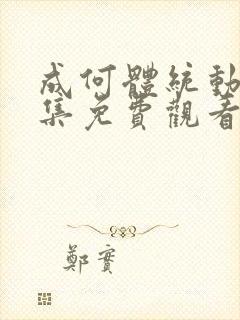 成何體統動
集免費觀看
鄭實